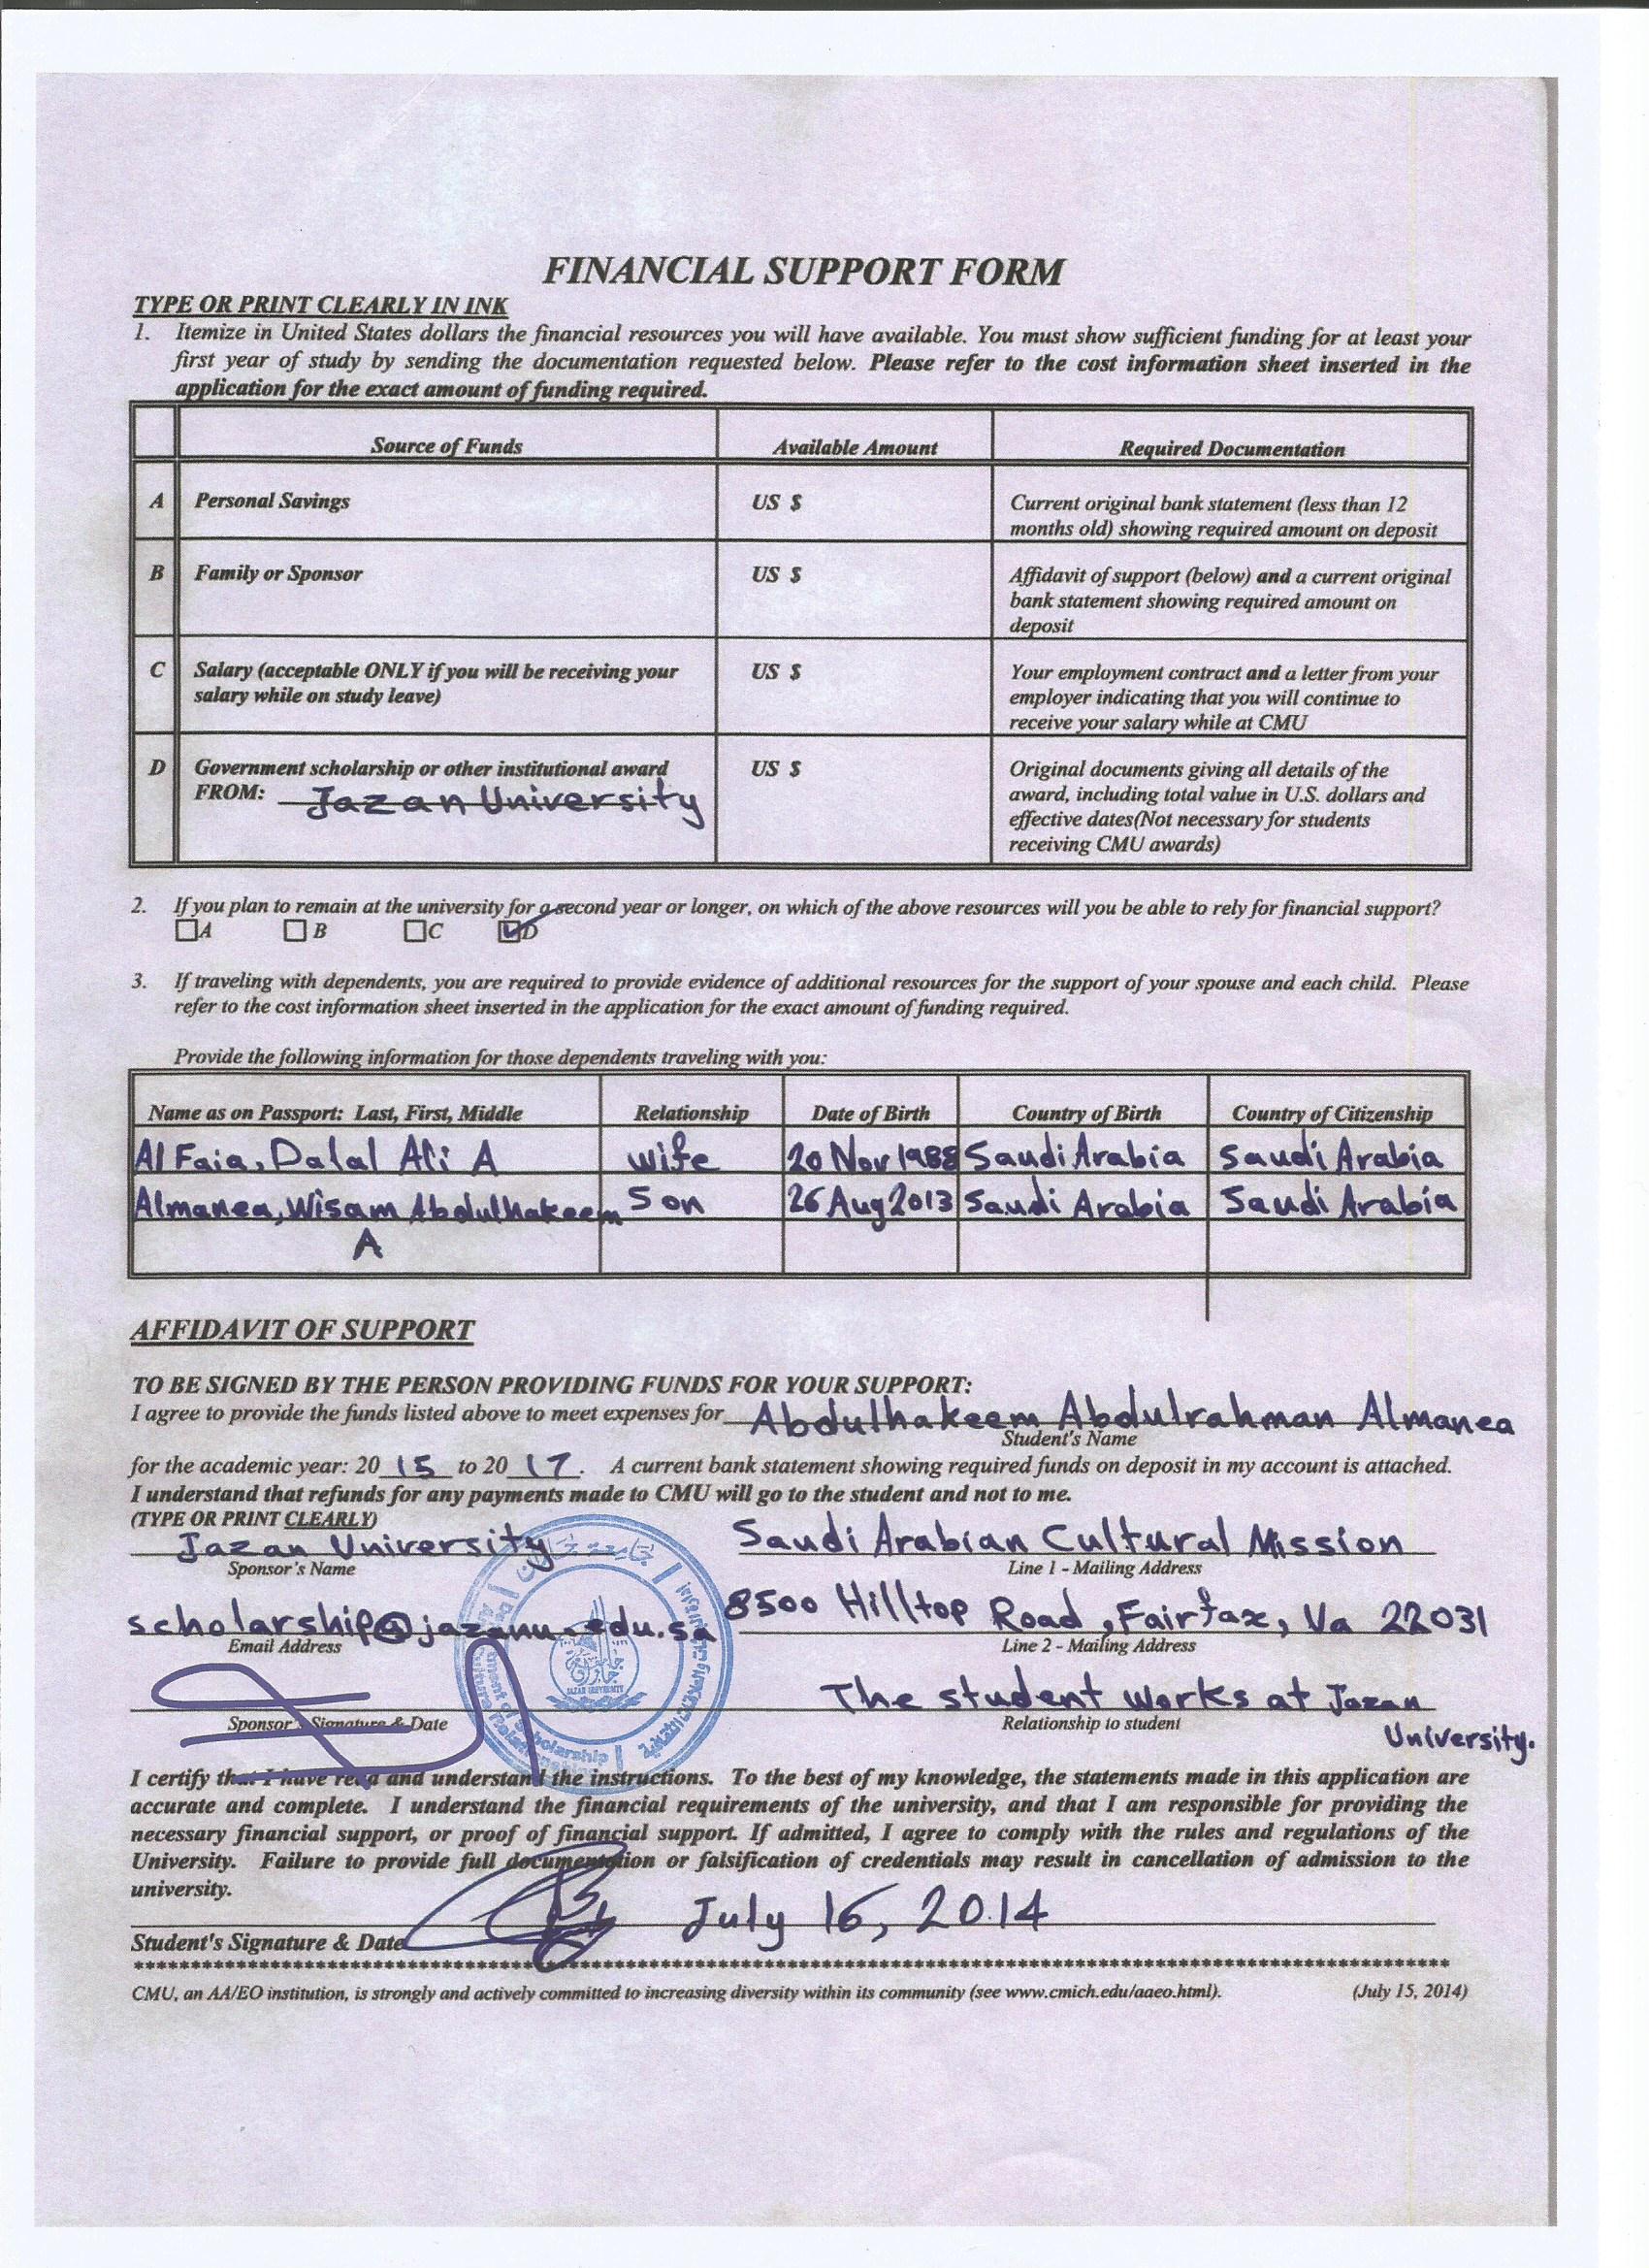 FINANCIAL SUPPORT FORM
TYPE OR PRINT CLEARLY IN INK
1. Itemize in United States dollars the financial resources you will have available. You must show sufficient funding for at least your
first year of study by sending the documentation requested below. Please refer to the cost information sheet inserted in the
application for the exact amount of funding required.
Source of Funds Available Amount Required Documentation
A Personal Savings US $ Current original bank statement (less than 12
months old) showing required amount on deposit
B Family or Sponsor US $ Affidavit of support (below) and a current original
bank statement showing required amount on
deposit
C Salary (acceptable ONLY if you will be receiving your US $ Your employment contract and a letter from your
salary while on study leave) employer indicating that you will continue to
receive your salary while at CMU
D Government scholarship or other institutional award US $ Original documents giving all details of the
FROM: Jazan University award, including total value in U.S. dollars and
effective dates(Not necessary for students
receiving CMU awards)
2. If you plan to remain at the university for a second year or longer, on which of the above resources will you be able to rely for financial support?
A B C D
3. If traveling with dependents, you are required to provide evidence of additional resources for the support of your spouse and each child. Please
refer to the cost information sheet inserted in the application for the exact amount of funding required.
Provide the following information for those dependents traveling with you:
Name as on Passport: Last, First, Middle Relationship Date of Birth Country of Birth Country of Citizenship
Al Faia, Dalal Ali A wife 20 Nov 1988 Saudi Arabia Saudi Arabia
Almanea, Wisam Abdulhakeem Son 26 Aug 2013 Saudi Arabia Saudi Arabia
A
AFFIDAVIT OF SUPPORT
TO BE SIGNED BY THE PERSON PROVIDING FUNDS FOR YOUR SUPPORT:
I agree to provide the funds listed above to meet expenses for Abdulhakeem Abdulrahman Almanea
Student's Name
for the academic year: 20 15 to 20 17. A current bank statement showing required funds on deposit in my account is attached.
I understand that refunds for any payments made to CMU will go to the student and not to me.
(TYPE OR PRINT CLEARLY)
Jazan University Saudi Arabian Cultural Mission
Sponsor's Name Line 1 - Mailing Address
scholarship@jazanu.edu.sa 8500 Hilltop Road, Fairfax, Va 22031
Email Address Line 2 - Mailing Address
The student works at Jazan
Sponsor's Signature & Date Relationship to student
University.
JAZAN UNIVERSITY
I certify that I have read and understand the instructions. To the best of my knowledge, the statements made in this application are
accurate and complete. I understand the financial requirements of the university, and that I am responsible for providing the
necessary financial support, or proof of financial support. If admitted, I agree to comply with the rules and regulations of the
University. Failure to provide full documentation or falsification of credentials may result in cancellation of admission to the
university.
July 16, 2014
Student's Signature & Date
CMU, an AA/EO institution, is strongly and actively committed to increasing diversity within its community (see www.cmich.edu/aaeo.html). (July 15, 2014)